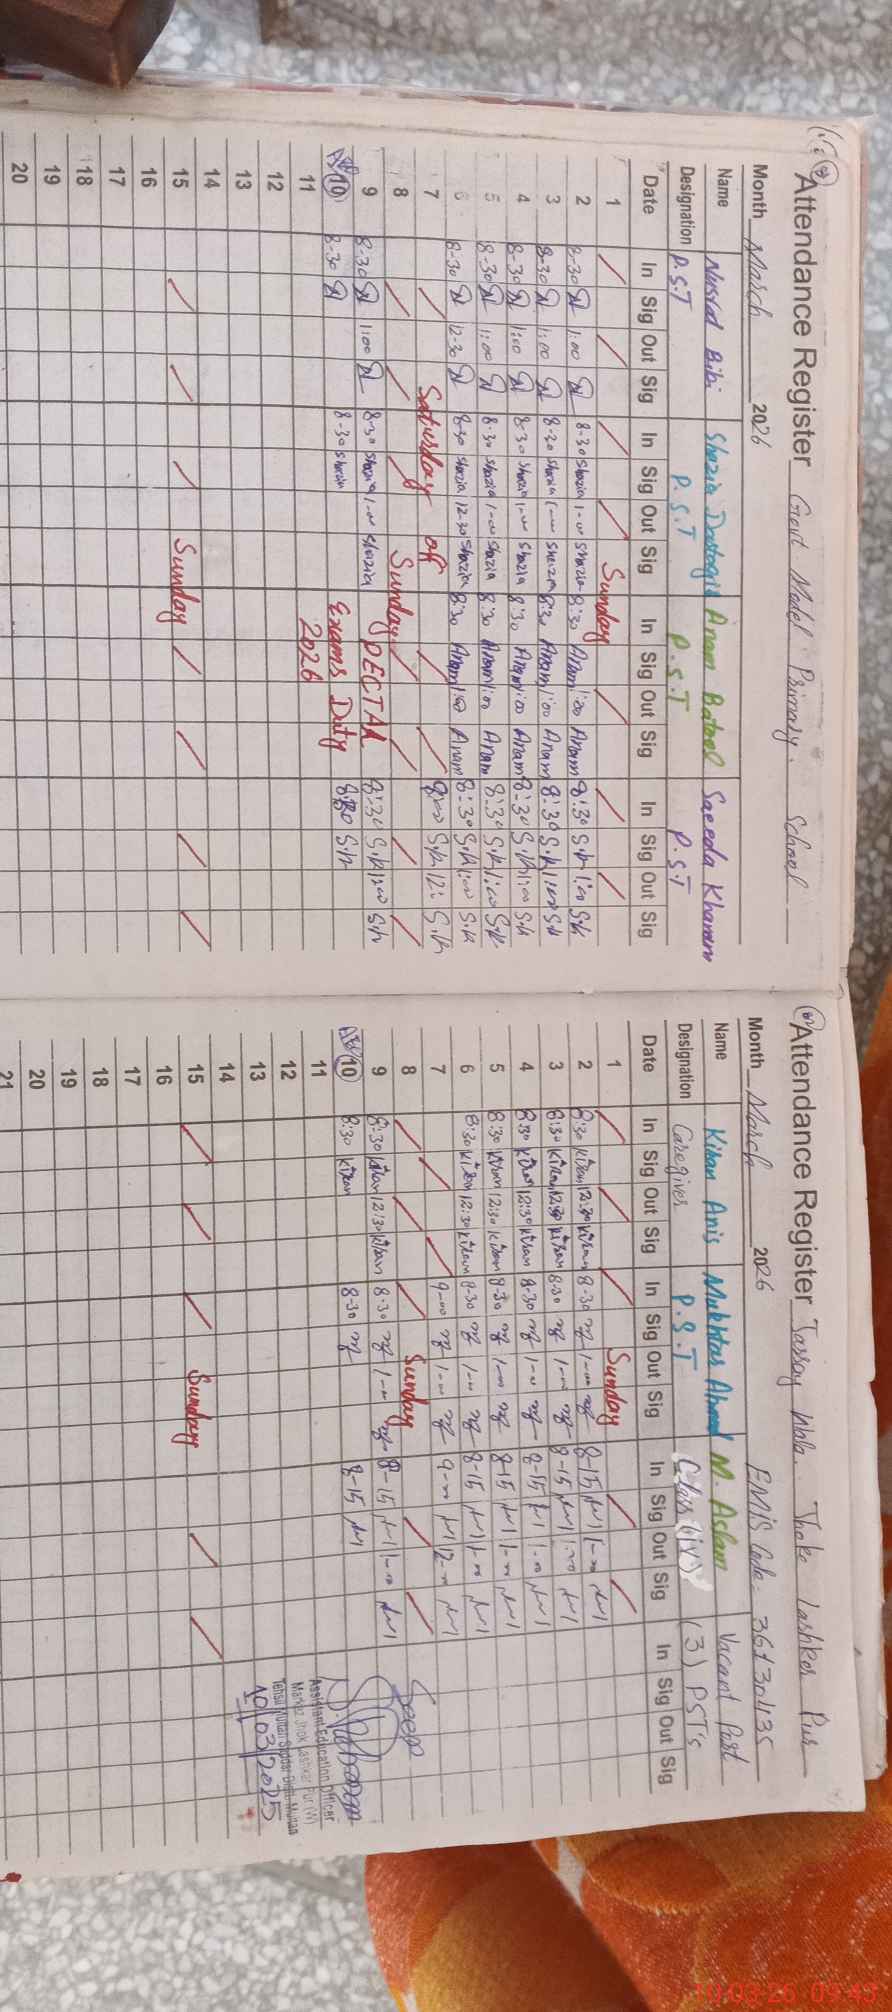 Attendance Register Govt Model Primary School
Month March 2026
Name Nusrat Bibi Shazia Dastagir Anam Batool Saeeda Khanam
Designation P.S.T P.S.T P.S.T P.S.T
Date In Sig Out Sig In Sig Out Sig In Sig Out Sig In Sig Out Sig
1 Sunday
2 8-30 1:00 8-30 Shazia 1-00 Shazia 8:30 Anam 1:00 Anam 8:30 S.K 1:00 S.K
3 8-30 1:00 8-30 Shazia 1-00 Shazia 8:30 Anam 1:00 Anam 8:30 S.K 1:00 S.K
4 8-30 1:00 8-30 Shazia 1-00 Shazia 8:30 Anam 1:00 Anam 8:30 S.K 1:00 S.K
5 8-30 1:00 8-30 Shazia 1-00 Shazia 8:30 Anam 1:00 Anam 8:30 S.K 1:00 S.K
6 8-30 12-30 8-30 Shazia 12-30 Shazia 8:30 Anam Anam 8:30 S.K 1:00 S.K
7 Saturday off S.K S.K
8 Sunday
9 8-30 1:00 8-30 Shazia 1-00 Shazia PECTAA 8:30 S.K 1:00 S.K
10 8-30 8-30 Shazia Exams Duty 8:30 S.K
11 2026
12
13
14
15 Sunday
16
17
18
19
20
Attendance Register Jassay Wala. Thoke Lashker Pur
Month March 2026 EMIS Code. 36130435
Name Kiran Anis Mukhtar Ahmad M. Aslam Vacant Post
Designation Caregiver P.S.T Class (iv) (3) PST's
Date In Sig Out Sig In Sig Out Sig In Sig Out Sig In Sig Out Sig
1 Sunday
2 8:30 Kiran 12:30 Kiran 8-30 1-00 8-15 1-00
3 8:30 Kiran 12:30 Kiran 8-30 1-00 8-15 1:00
4 8:30 Kiran 12:30 Kiran 8-30 1-00 8-15 1-00
5 8:30 Kiran 12:30 Kiran 8-30 1-00 8-15 1-00
6 8:30 Kiran 12:30 Kiran 8-30 1-00 8-15 1-00
7 9-00 1-00 9-00 12-00
8 Sunday
9 8:30 Kiran 12:30 Kiran 8-30 1-00 8-15 1-00
10 8:30 Kiran 8-30 8-15
11
12
13
14
15 Sunday
16
17
18
19
20
21
Seen
Assistant Education Officer
Markaz Jhok Lashkar Pur (W)
Tehsil Multan Saddar Distt. Multan
10/03/2025
10-03-26 09:43